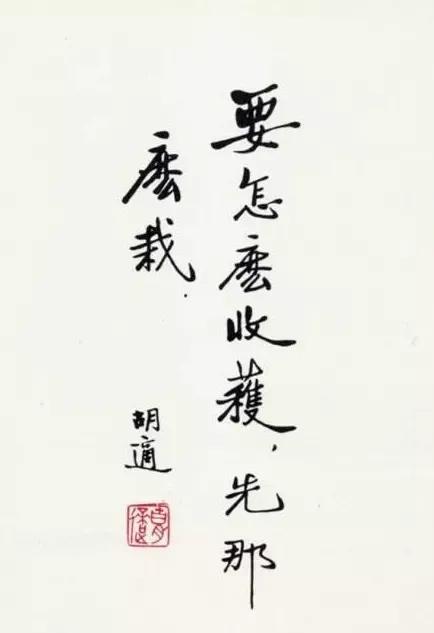 要怎麼收穫，先那
麼栽．
胡適